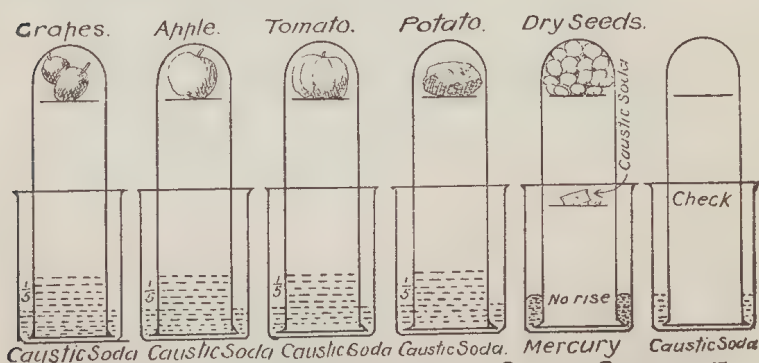 Grapes. Apple. Tomato. Potato. Dry Seeds.
Caustic Soda
Check
1/5 1/5 1/5 1/5 No rise
Caustic Soda Caustic Soda Caustic Soda Caustic Soda. Mercury Caustic Soda